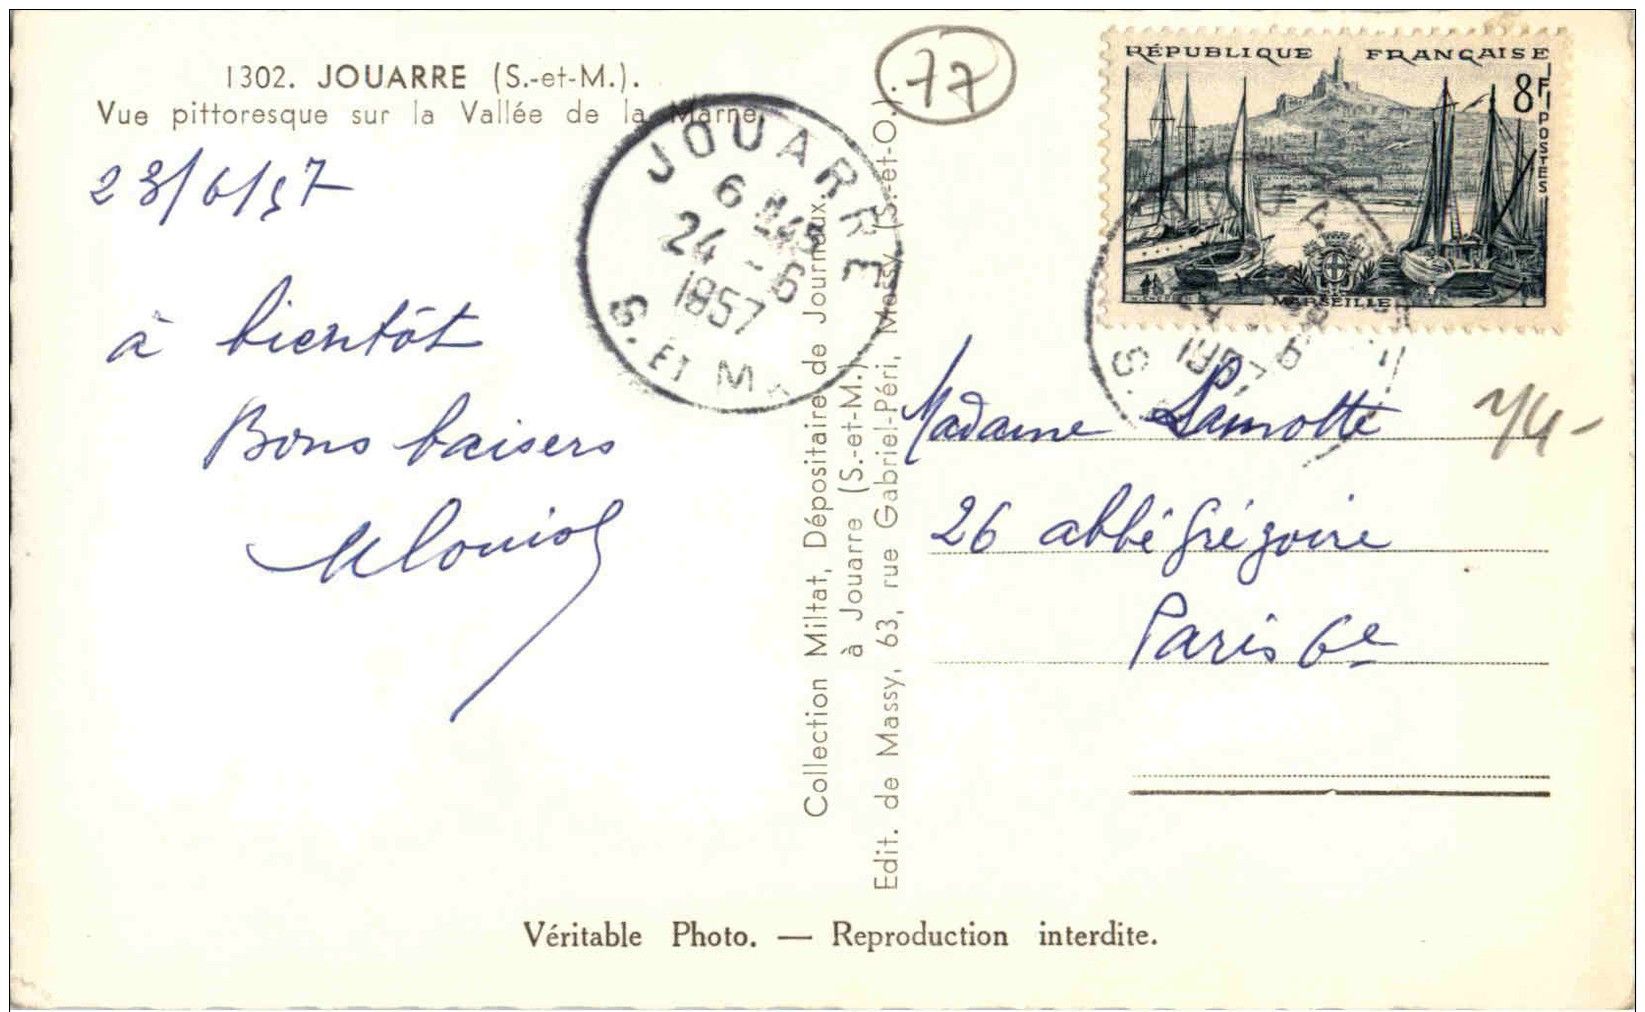 1302. JOUARRE (S.-et-M.).
Vue pittoresque sur la Vallée de la Marne.
23/6/57
à bientôt
Bons baisers
JOUARRE
6 H 45
24 - 6
1957
S. ET M.
Collection Miltat, Dépositaire de Journaux,
à Jouarre (S.-et-M.)
Edit. de Massy, 63, rue Gabriel-Péri, Massy (S.-et-O.).
77
RÉPUBLIQUE FRANÇAISE
8F
POSTES
MARSEILLE
Madame Lamotte
26 abbé Grégoire
Paris 6e
Véritable Photo. — Reproduction interdite.